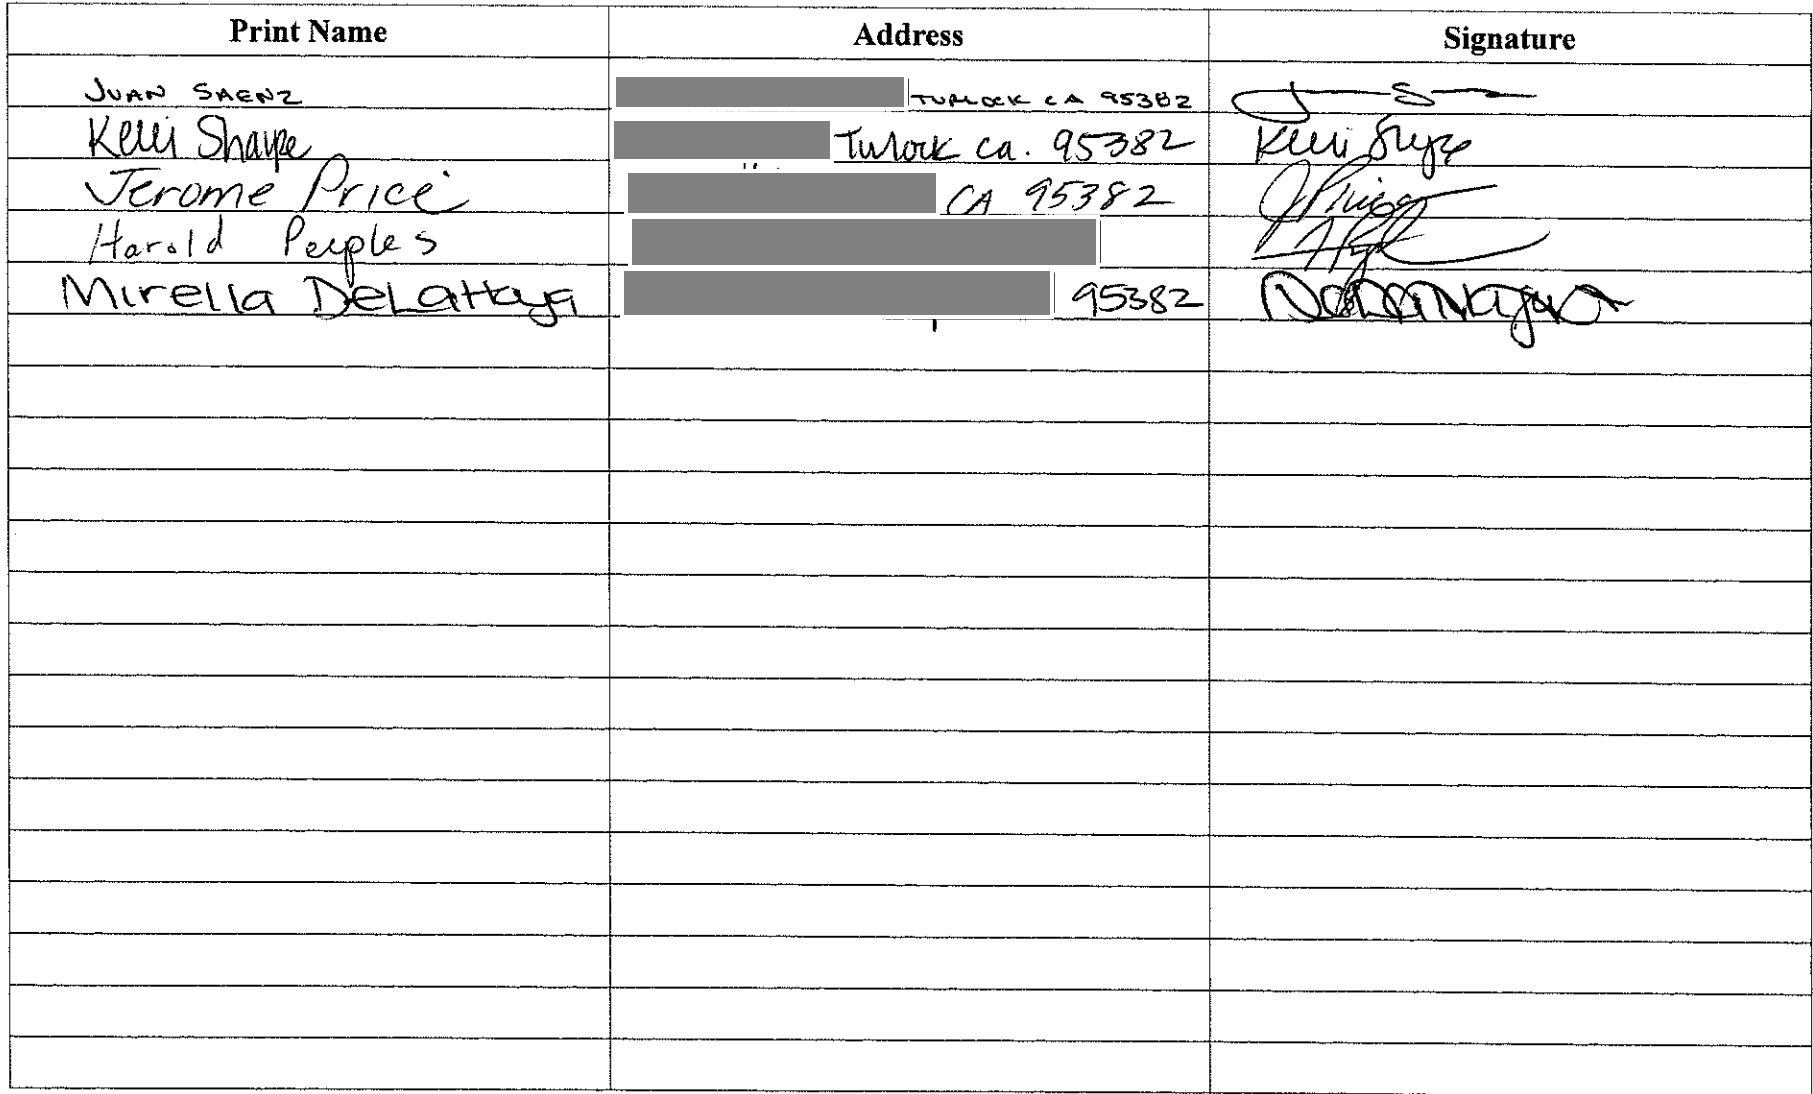 Print Name Address Signature
JUAN SAENZ TURLOCK CA 95382 J S
Kelli Sharpe Turlock ca. 95382 Kelli Sharpe
Jerome Price CA 95382 J Price
Harold Peeples
Mirella DeLaHaya 95382